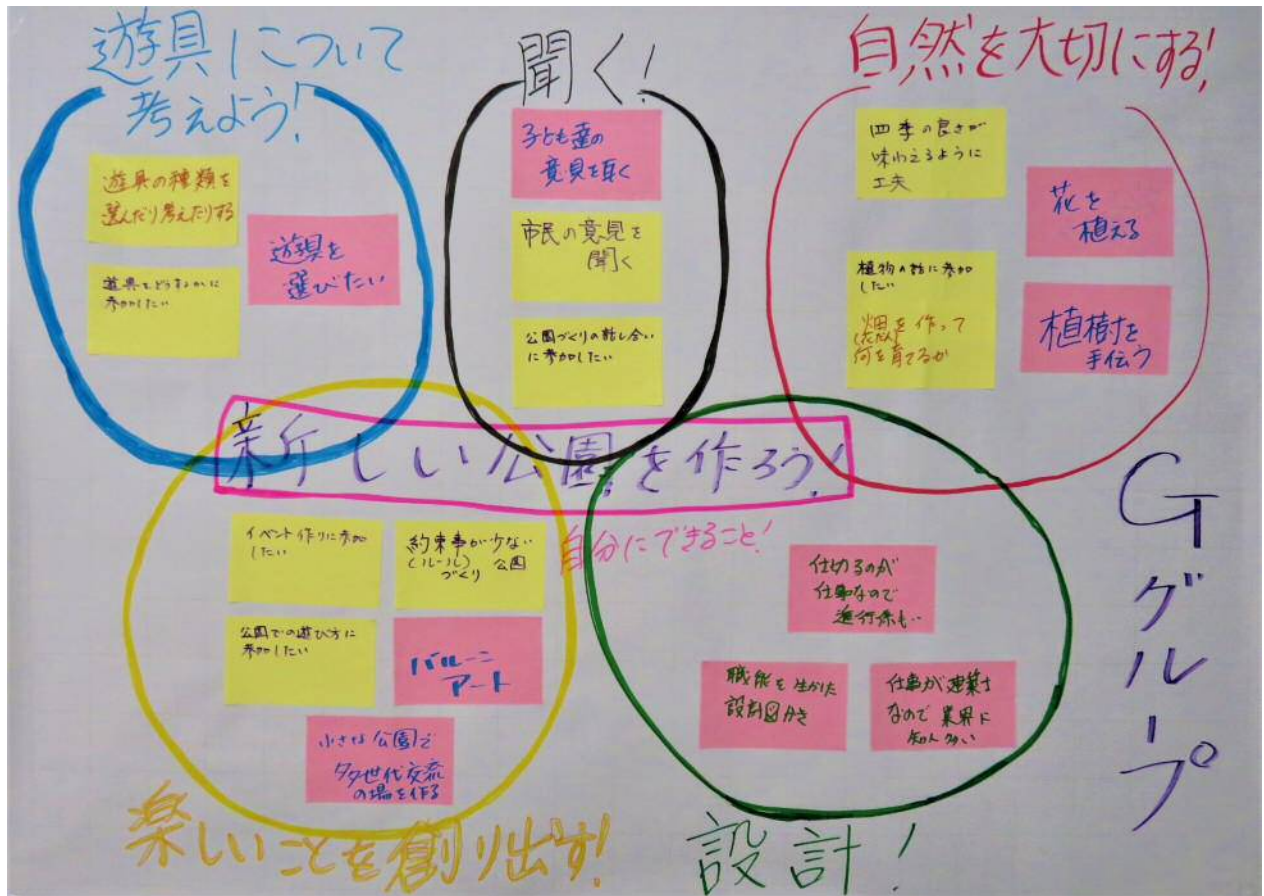 遊具について
考えよう!
遊具の種類を
選んだり考えたりする
遊具を
選びたい
遊具をどうするかに
参加したい
聞く!
子ども達の
意見を聞く
市民の意見を
聞く
公園づくりの話し合い
に参加したい
自然を大切にする!
四季の良さが
味わえるように
工夫
花を
植える
植物の話に参加
したい
畑を作って
(花だん)
何を育てるか
植樹を
手伝う
新しい公園を作ろう!
自分にできること!
Gグループ
イベント作りに参加
したい
約束事が少ない
(ルール) 公園
づくり
公園での遊び方に
参加したい
バルーン
アート
小さな公園で
多世代交流
の場を作る
楽しいことを創り出す!
仕切るのが
仕事なので
進行係も…
職能を生かした
設計図かき
仕事が建築士
なので業界に
知人多い
設計!